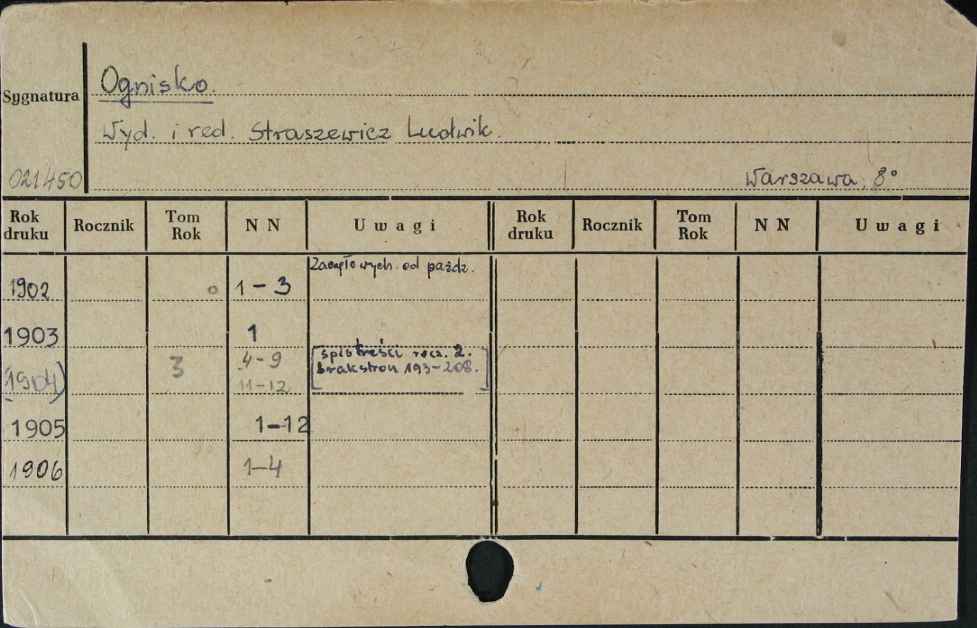 Ognisko.
Sygnatura
Wyd. i red. Straszewicz Ludwik.
021450
Warszawa, 8°
Rok druku Rocznik Tom Rok N N U w a g i Rok druku Rocznik Tom Rok N N U w a g i
Zaczęło wych. od paźdz.
1902 0 1-3
1903 1
spis treści rocz. 2.
(1904) 3 4-9 brak stron 193-208.
11-12
1905 1-12
1906 1-4